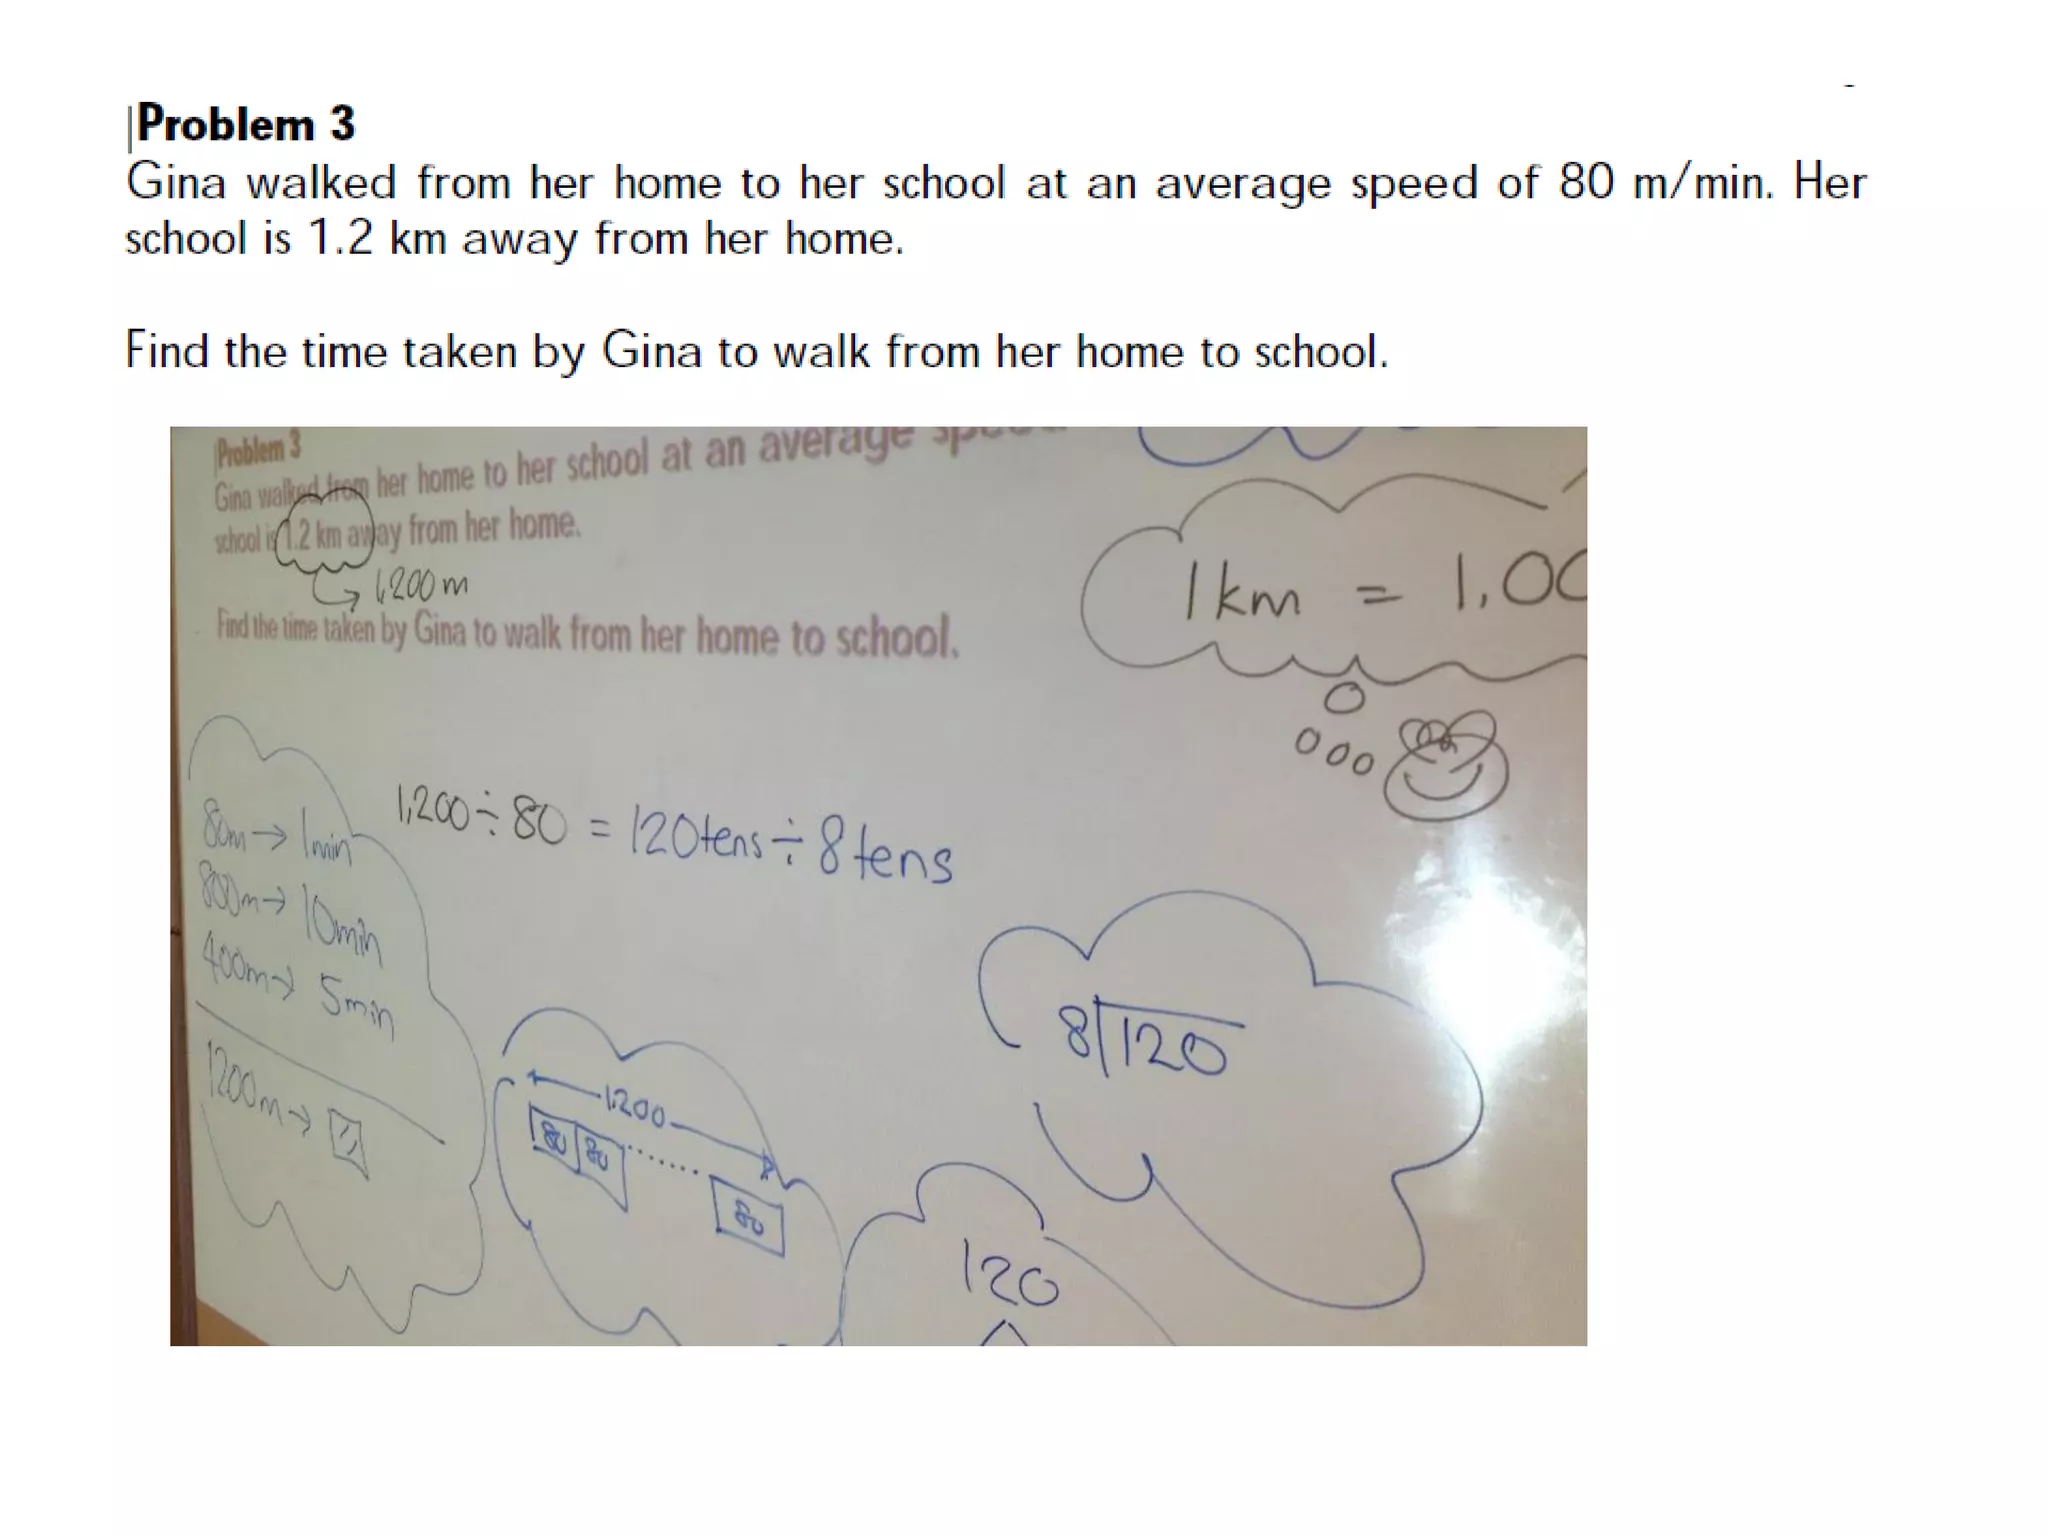 Problem 3
Gina walked from her home to her school at an average speed of 80 m/min. Her
school is 1.2 km away from her home.
Find the time taken by Gina to walk from her home to school.
Problem 3
Gina walked from her home to her school at an average
school is 1.2 km away from her home.
1,200 m
Find the time taken by Gina to walk from her home to school.
1 km = 1,00
80m → 1 min
800m → 10 min
400m → 5 min
1200m →
1,200 ÷ 80 = 120 tens ÷ 8 tens
1,200
80 80 ....... 80
8 120
120